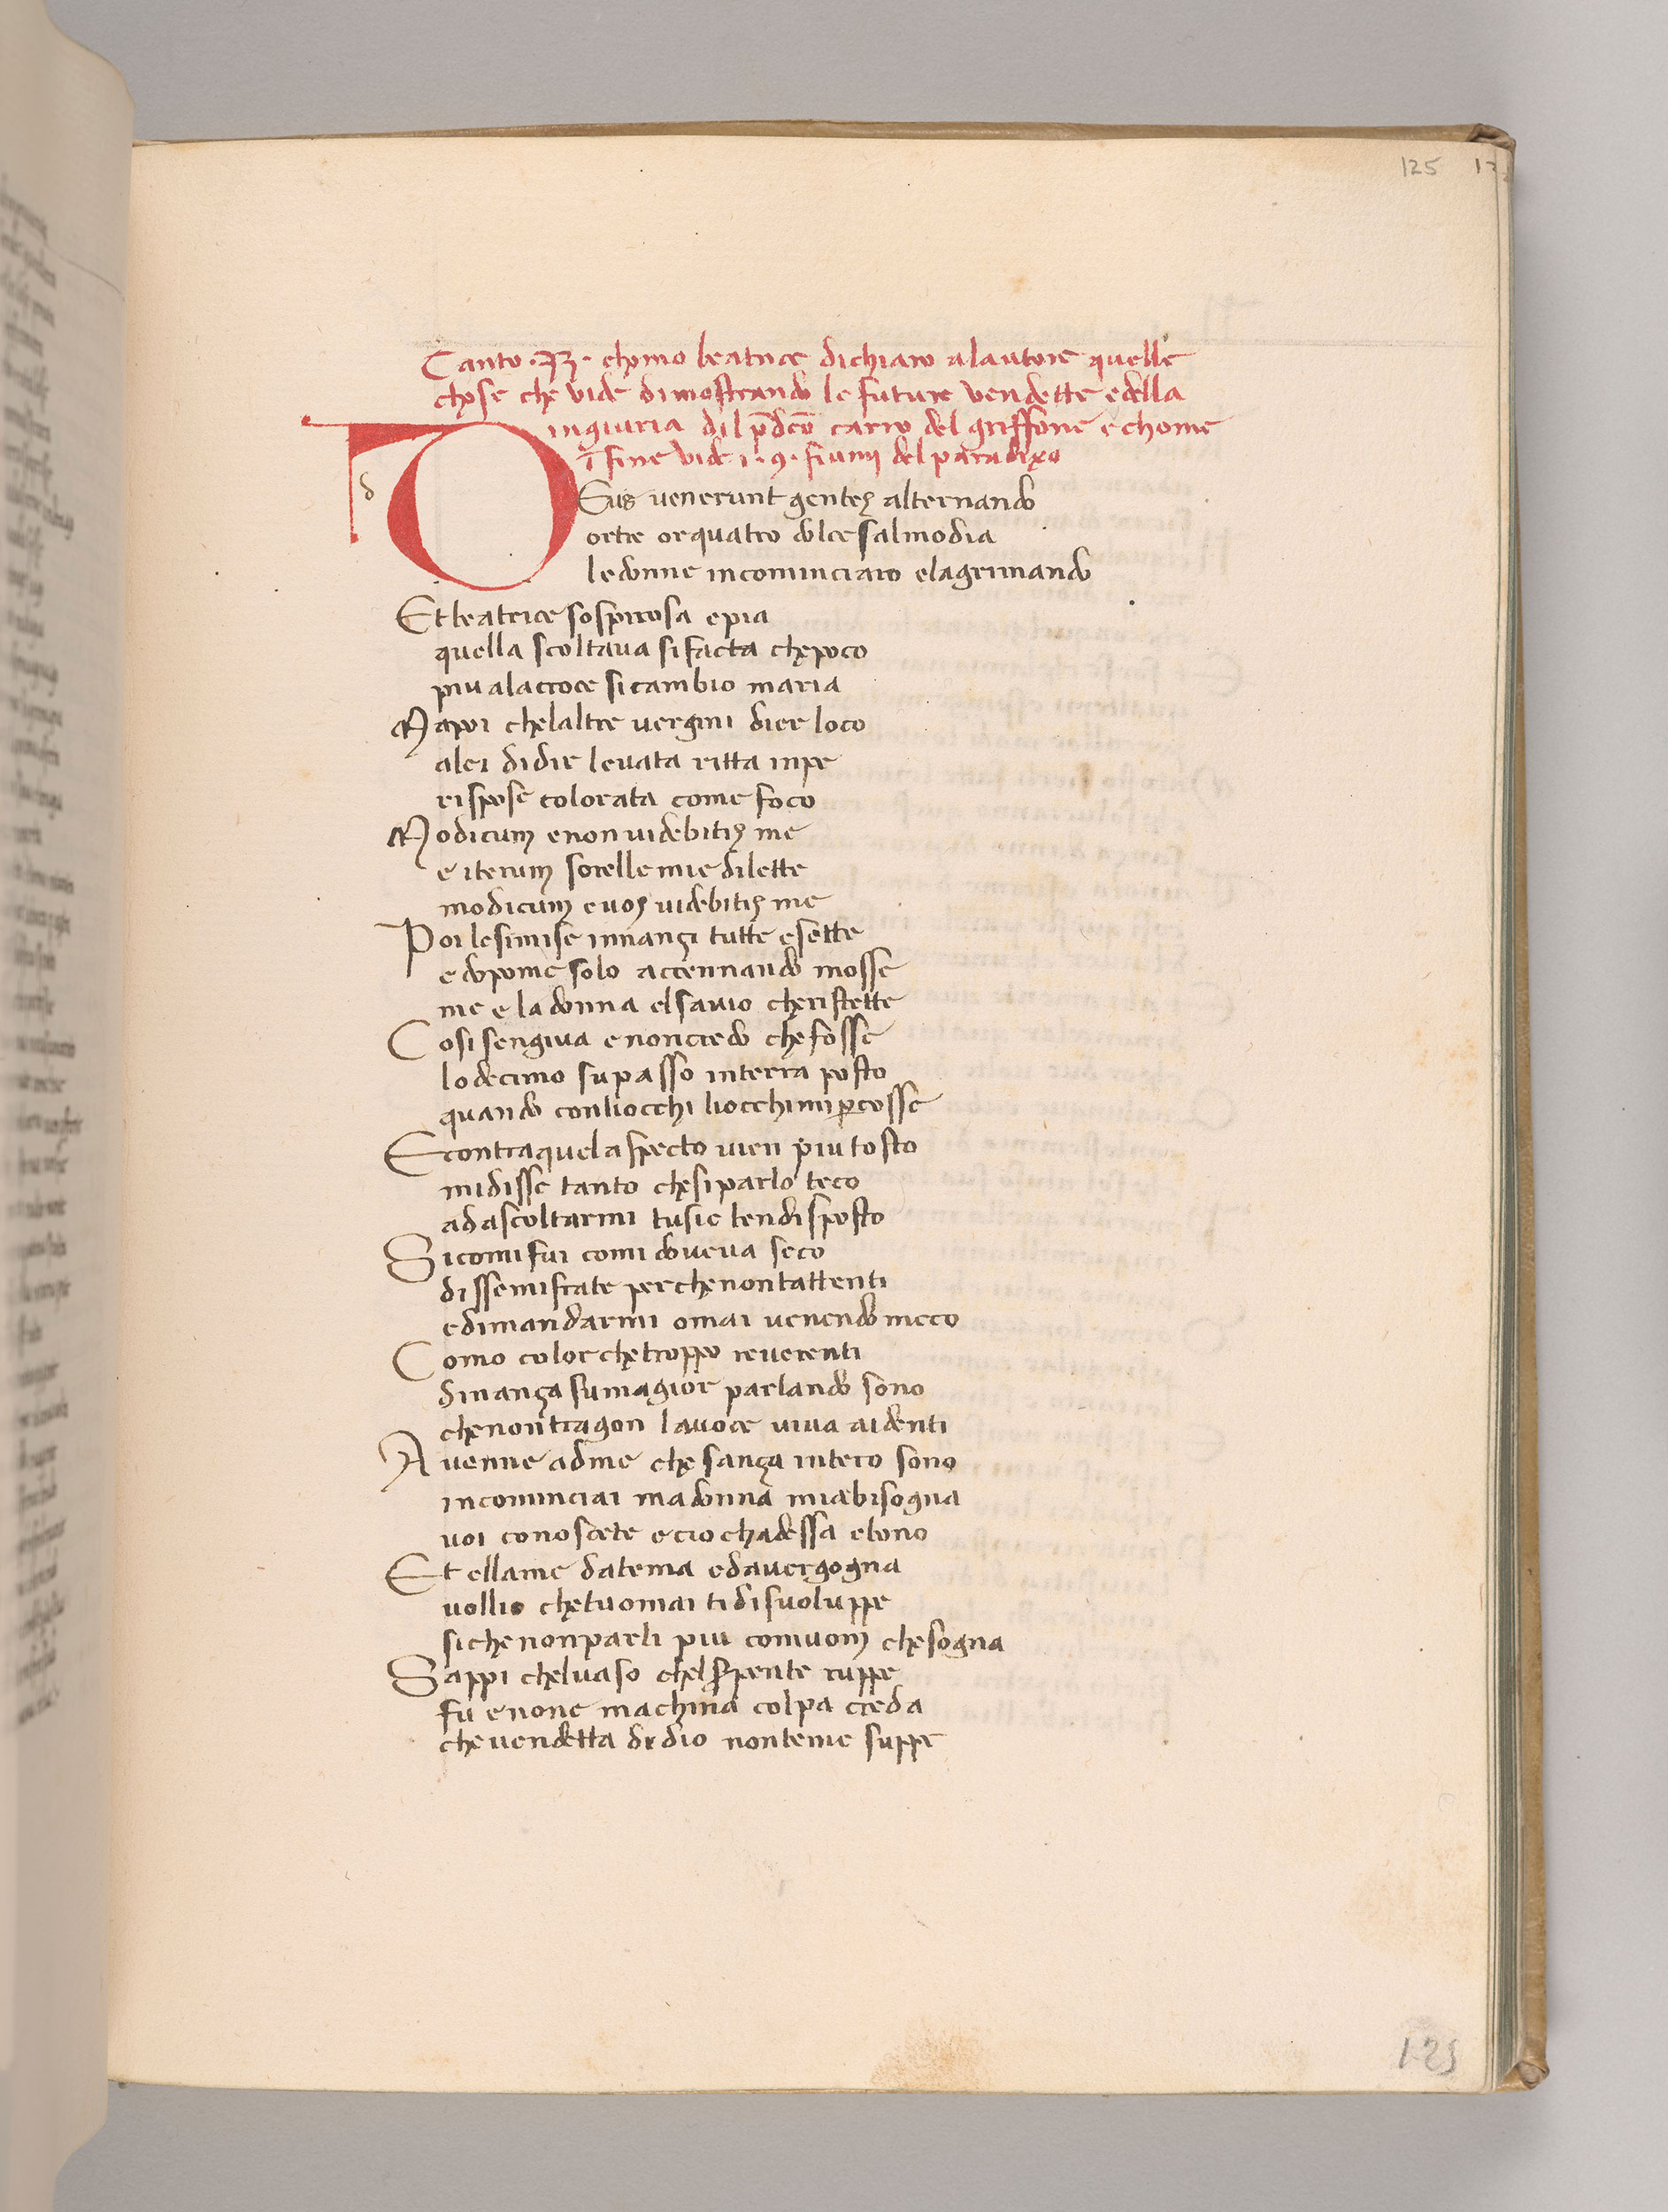 125
Canto .33. chomo beatrice dichiaro alautore quelle
chose che vide dimostrando le future vendette e della
ingiuria dil p̄dc̄o carro del griffone e chome
ī fine vide i .9. fiumi del paradixo
d
DEus venerunt gentes alternando
or tre or quatro dolce salmodia
le donne incominciaro e lagrimando
Et beatrice sospirosa e pia
quella scoltava si facta che poco
piu ala croce si cambio maria
Ma poi chelaltre vergini dier loco
alei didir levata ritta inpe
rispose colorata come foco
Modicum e non videbitis me
e iterum sorelle mie dilette
modicum e vos videbitis me
Poi lesimise innanzi tutte e sette
e dopo me solo accennando mosse
me e la donna el savio che ristette
Cosi sengiva e non credo che fosse
lo decimo su passo in terra posto
quando conliocchi liocchi mi percosse
E contra quel aspecto vien piu tosto
mi disse tanto che si parlo teco
ad ascoltarmi tu sie ben disposto
Si comi fui comi doveva seco
dissemi frate perche non tattenti
edimandarmi omai venendo meco
Como color che troppo reverenti
dinanza su magior parlando sono
che non tragon la voce viva aidenti
Avenne adme che sanza intero sono
incominciai madonna mia bisogna
voi conoscete e cio chadessa e bono
Et ella me datema edavergogna
vollio che tu omai ti disvoluppe
si che non parli piu comuom che sogna
Sappi chel vaso chel serpente ruppe
fu e none ma chi na colpa creda
che vendetta di dio non teme suppe
125